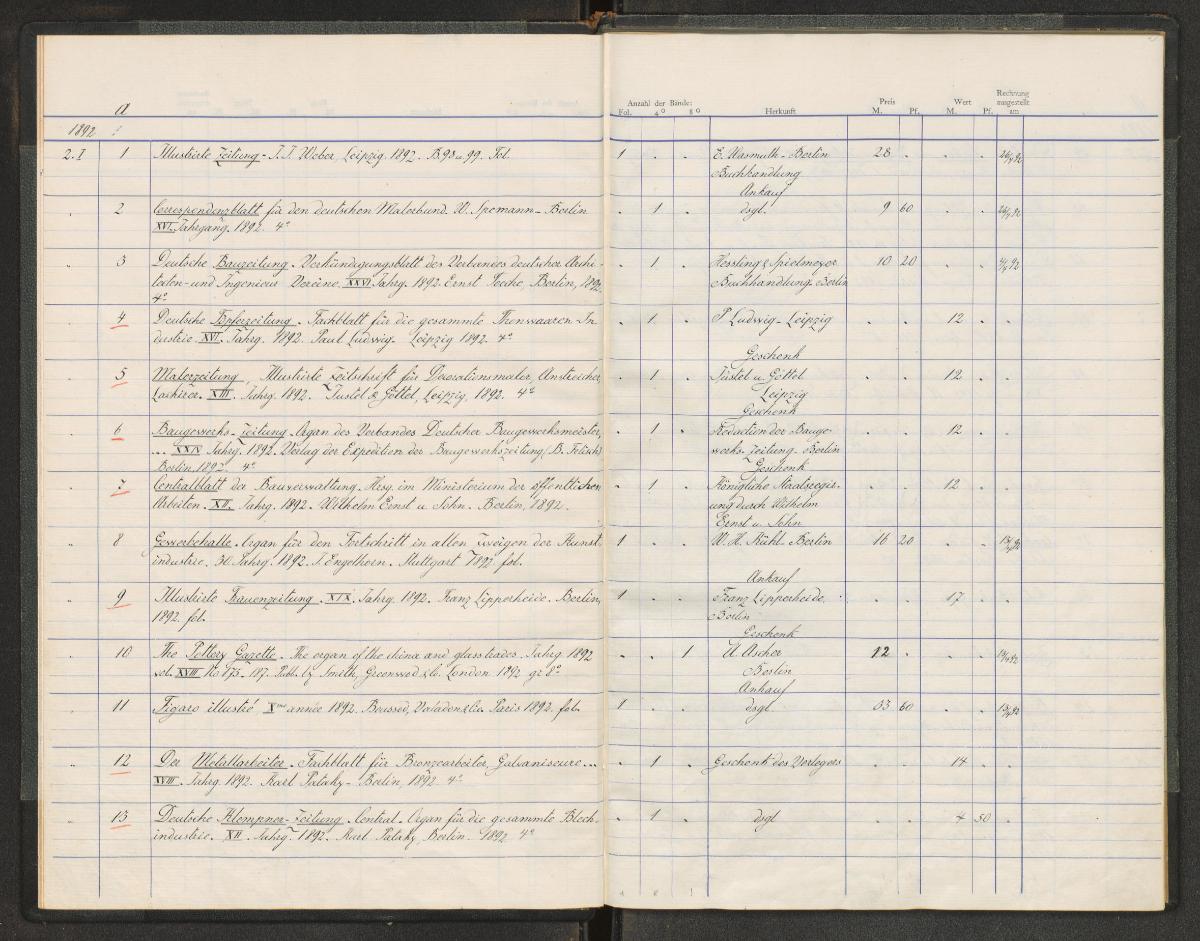 a
1892
2.I 1 Illustrirte Zeitung - J. J. Weber, Leipzig. 1892. B. 98 u. 99. Fol.
" 2 Correspondenzblatt für den deutschen Malerbund. W. Spemann - Berlin
XVI. Jahrgang. 1892. 4°
" 3 Deutsche Bauzeitung. Verkündigungsblatt des Verbandes deutscher Archi-
tecten- und Ingenieur Vereine. XXVI Jahrg. 1892. Ernst Toeche, Berlin, 1892.
4°
" 4 Deutsche Töpferzeitung. Fachblatt für die gesammte Thonwaaren In-
dustrie. XVI. Jahrg. 1892. Paul Ludwig. Leipzig 1892. 4°
" 5 Malerzeitung, Illustrirte Zeitschrift für Decorationsmaler, Anstreicher,
Lackirer. XIII. Jahrg. 1892. Jüstel & Göttel, Leipzig, 1892. 4°
" 6 Baugewerks-Zeitung. Organ des Verbandes Deutscher Baugewerksmeister,
... XXIV Jahrg. 1892. Verlag der Expedition der Baugewerkszeitung (B. Felisch)
Berlin, 1892. 4°
" 7 Centralblatt der Bauverwaltung. Hrsg. im Ministerium der öffentlichen
Arbeiten. XII. Jahrg. 1892. Wilhelm Ernst u. Sohn. Berlin, 1892.
" 8 Gewerbehalle. Organ für den Fortschritt in allen Zweigen der Kunst
industrie. 30. Jahrg. 1892. J. Engelhorn. Stuttgart 1892 fol.
" 9 Illustrirte Frauenzeitung. XIX. Jahrg. 1892. Franz Lipperheide. Berlin,
1892. fol.
" 10 The Pottery Gazette. The organ of the china and glass trades. Jahrg. 1892
vol. XVIII No 175-187. Publ. by Smith, Greenwood & Co. London 1892 gr 8°
" 11 Figaro illustré Xme année 1892. Boussod, Valadon & Cie. Paris 1892. fol.
" 12 Der Metallarbeiter. Fachblatt für Bronzearbeiter, Galvaniseure...
XVIII. Jahrg. 1892. Karl Pataky - Berlin, 1892. 4°
" 13 Deutsche Klempner-Zeitung. Central. Organ für die gesammte Blech-
industrie. XII. Jahrg. 1892. Karl Pataky, Berlin. 1892. 4°
Anzahl der Bände: Preis Wert Rechnung ausgestellt
Fol. 4° 8° Herkunft M. Pf. M. Pf. am
1 . . E. Wasmuth - Berlin 28 . . .
Buchhandlung
Ankauf
. 1 . dsgl. 9 60 . .
. 1 . Hessling & Spielmeyer 10 20 . .
Buchhandlung. Berlin
. 1 . P Ludwig - Leipzig . . 12 . .
Geschenk
. 1 . Jüstel u. Göttel . . 12 . .
Leipzig
Geschenk
. 1 . Redaction der Bauge- . . 12 . .
werks-Zeitung. Berlin
Geschenk
. 1 . Königliche Staatsregir- . . 12 . .
ung durch Wilhelm
Ernst u. Sohn
1 . . W. H. Kühl. Berlin 16 20 . .
Ankauf
1 . . Franz Lipperheide. . . 17 . .
Berlin
Geschenk
. . 1 A. Ascher 12 . . .
Berlin
Ankauf
1 . . dsgl. 60 . .
. 1 . Geschenk des Verlegers . . 14 . .
. 1 . dsgl . . 4 50 .